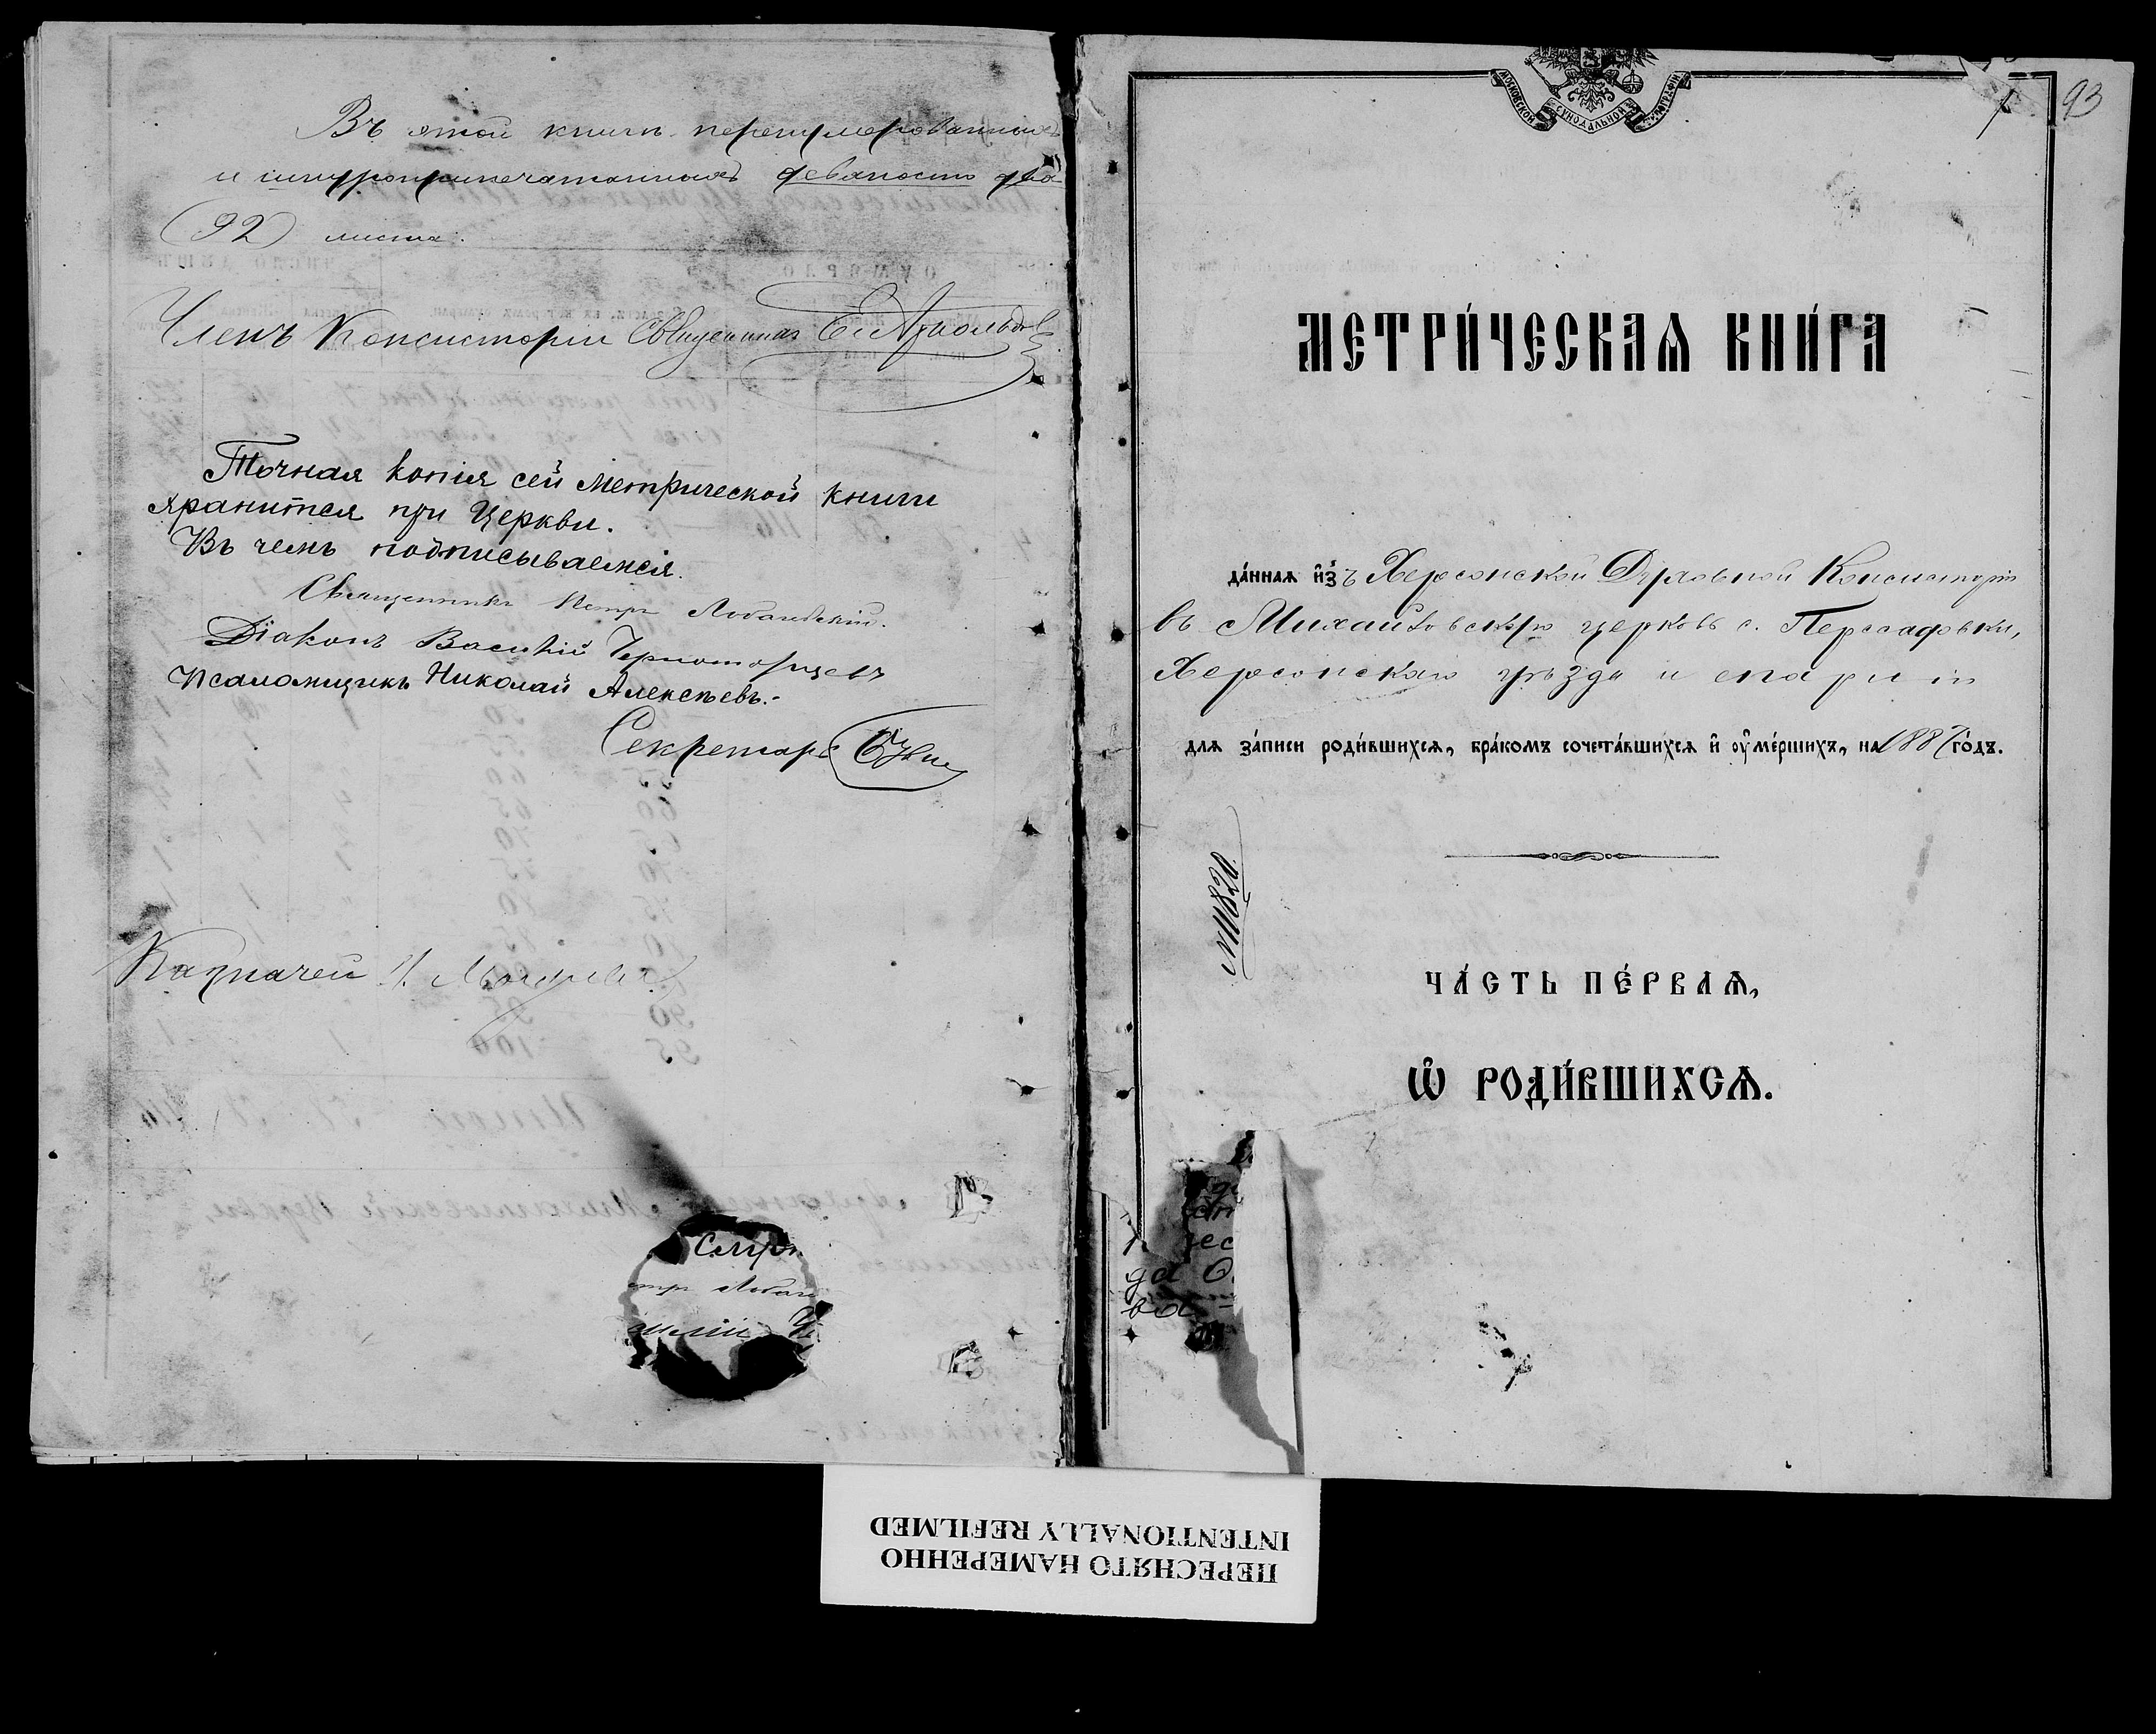 Въ этой книгѣ перенумерованныхъ
и шнуроприпечатанныхъ девяносто два
(92) листа.
Членъ Консисторіи Священникъ
Точная копія сей Метрической книги
хранится при Церкви.
Въ чемъ подписываемся.
Священникъ Петръ Лобачевскій.
Діаконъ Василій Черноморцевъ
Псаломщикъ Николай Алексѣевъ.-
Секретарь
Казначей
1 93
МОСКОВСКОЙ СѴНОДАЛЬНОЙ ТИПОГРАФІИ
МЕТРИ́ЧЕСКАѦ КНИ́ГА
да́ннаѧ и҆зъ Херсонской Духовной Консисторіи
въ Михайловскую церковь с.
Херсонскаго уѣзда и епархіи
для за́писи роди́вшихсѧ, бра́комъ сочета́вшихсѧ и҆ оу҆ме́ршихъ, на 1887 го́дъ.
№ 11820.
ЧА́СТЬ ПЕ́РВАѦ,
Ѽ РОДИ́ВШИХСѦ.
ПЕРЕСНЯТО НАМЕРЕННО
INTENTIONALLY REFILMED